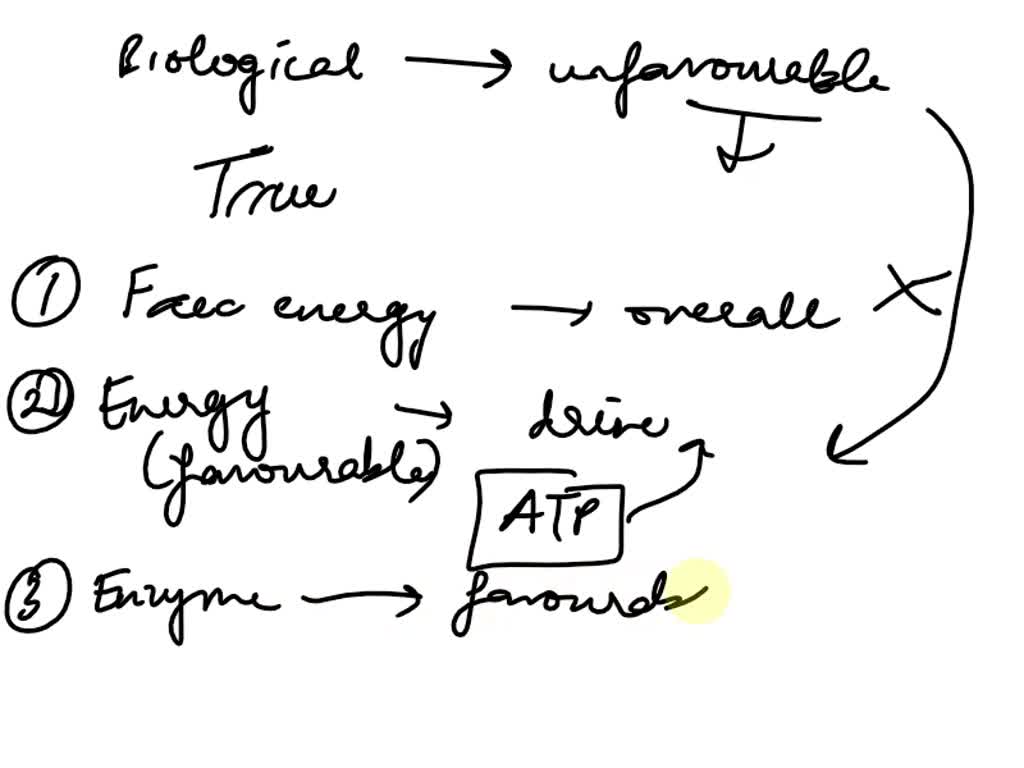 Biological → unfavourable
True
① Free energy → overall X
② Energy → drive
(favourable)
ATP
③ Enzyme → favourds